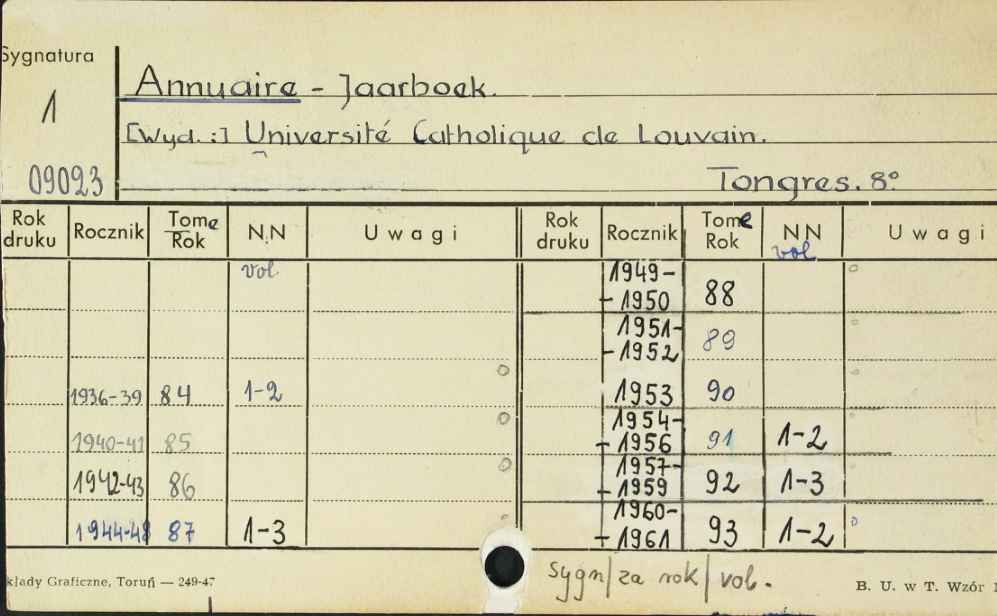 Sygnatura
1
09023
Annuaire - Jaarboek.
[Wyd.:] Université Catholique de Louvain.
Tongres. 8°
Rok druku Rocznik Tome Rok N.N vol. Uwagi Rok druku Rocznik Tome Rok NN vol Uwagi
1936-39 84 1-2
1940-41 85
1942-43 86
1944-48 87 1-3
1949-
-1950 88
1951-
-1952 89
1953 90
1954-
-1956 91 1-2
1957-
-1959 92 1-3
1960-
-1961 93 1-2
kłady Graficzne, Toruń — 249-47
Sygn/za rok/vol.
B. U. w T. Wzór